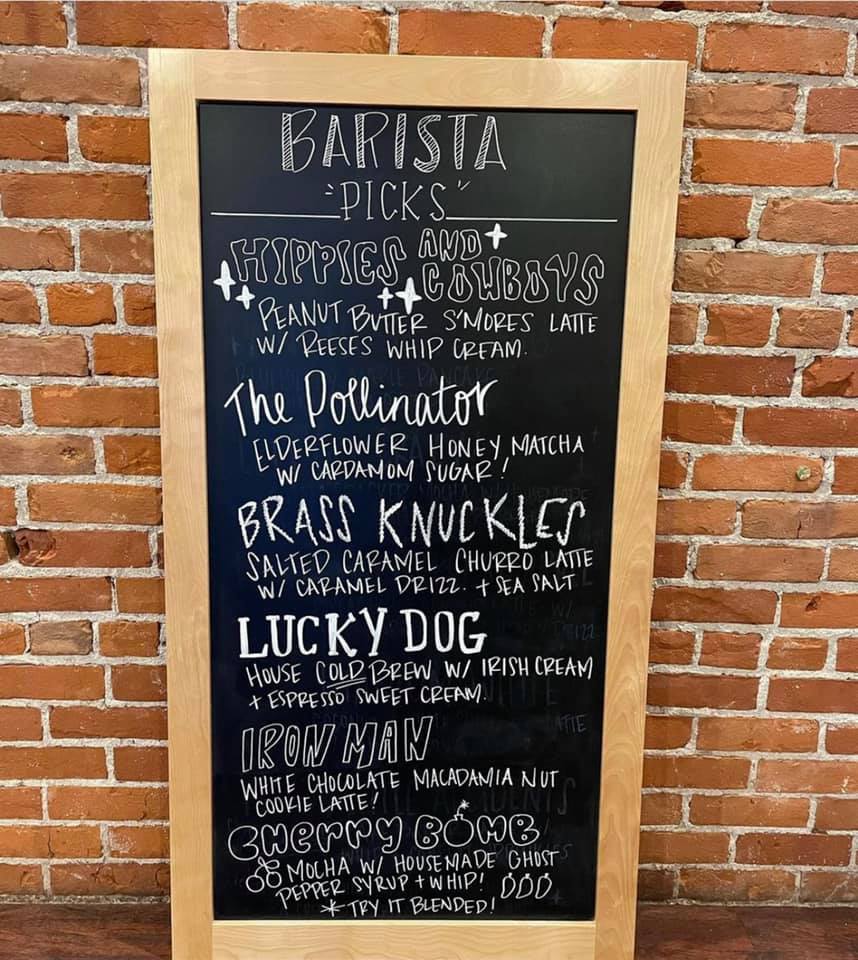 BARISTA
"PICKS"
HIPPIES AND COWBOYS
PEANUT BUTTER S'MORES LATTE
W/ REESES WHIP CREAM.
The Pollinator
ELDERFLOWER HONEY MATCHA
W/ CARDAMOM SUGAR!
BRASS KNUCKLES
SALTED CARAMEL CHURRO LATTE
W/ CARAMEL DRIZZ. + SEA SALT
LUCKY DOG
HOUSE COLD BREW W/ IRISH CREAM
+ ESPRESSO SWEET CREAM.
IRON MAN
WHITE CHOCOLATE MACADAMIA NUT
COOKIE LATTE!
CHERRY BOMB
MOCHA W/ HOUSEMADE GHOST
PEPPER SYRUP + WHIP!
*TRY IT BLENDED!